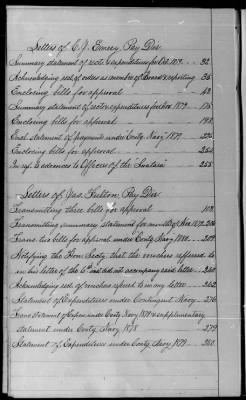 Letters of C. J. Emery, Pay Dir
Summary statement of rects & expenditures for Oct. 1879 — 32
Acknowledging recd. of orders as member of Board & reporting 36
Enclosing bills for approval — 43
Summary statement of rects & expenditures for Nov. 1879 — 175
Enclosing bills for approval — 198
Encl. Statement of payments under Contg Navy 1879 — 225
Enclosing bills for approval — 254
In ref. to advances to Officers of the "Swatara" — 255
Letters of Jas. Fulton, Pay Dir
Transmitting three bills for approval — 108
Transmitting summary statement for month of Nov. 1879 206
Trans. two bills for approval under Contg Navy 1880. — 209
Notifying the Hon Secty that the vouchers referred to
in his letter of the 6th inst. did not accompany said letter — 260
Acknowledging rect. of vouchers referred to in my letter — 262
Statement of Expenditures under Contingent Navy — 276
Trans. Statement of Expen. under Contg Navy 1879 & supplementary
statement under Contg Navy, 1878 — 279
Statement of Expenditure under Contg Navy 1879 — 280.